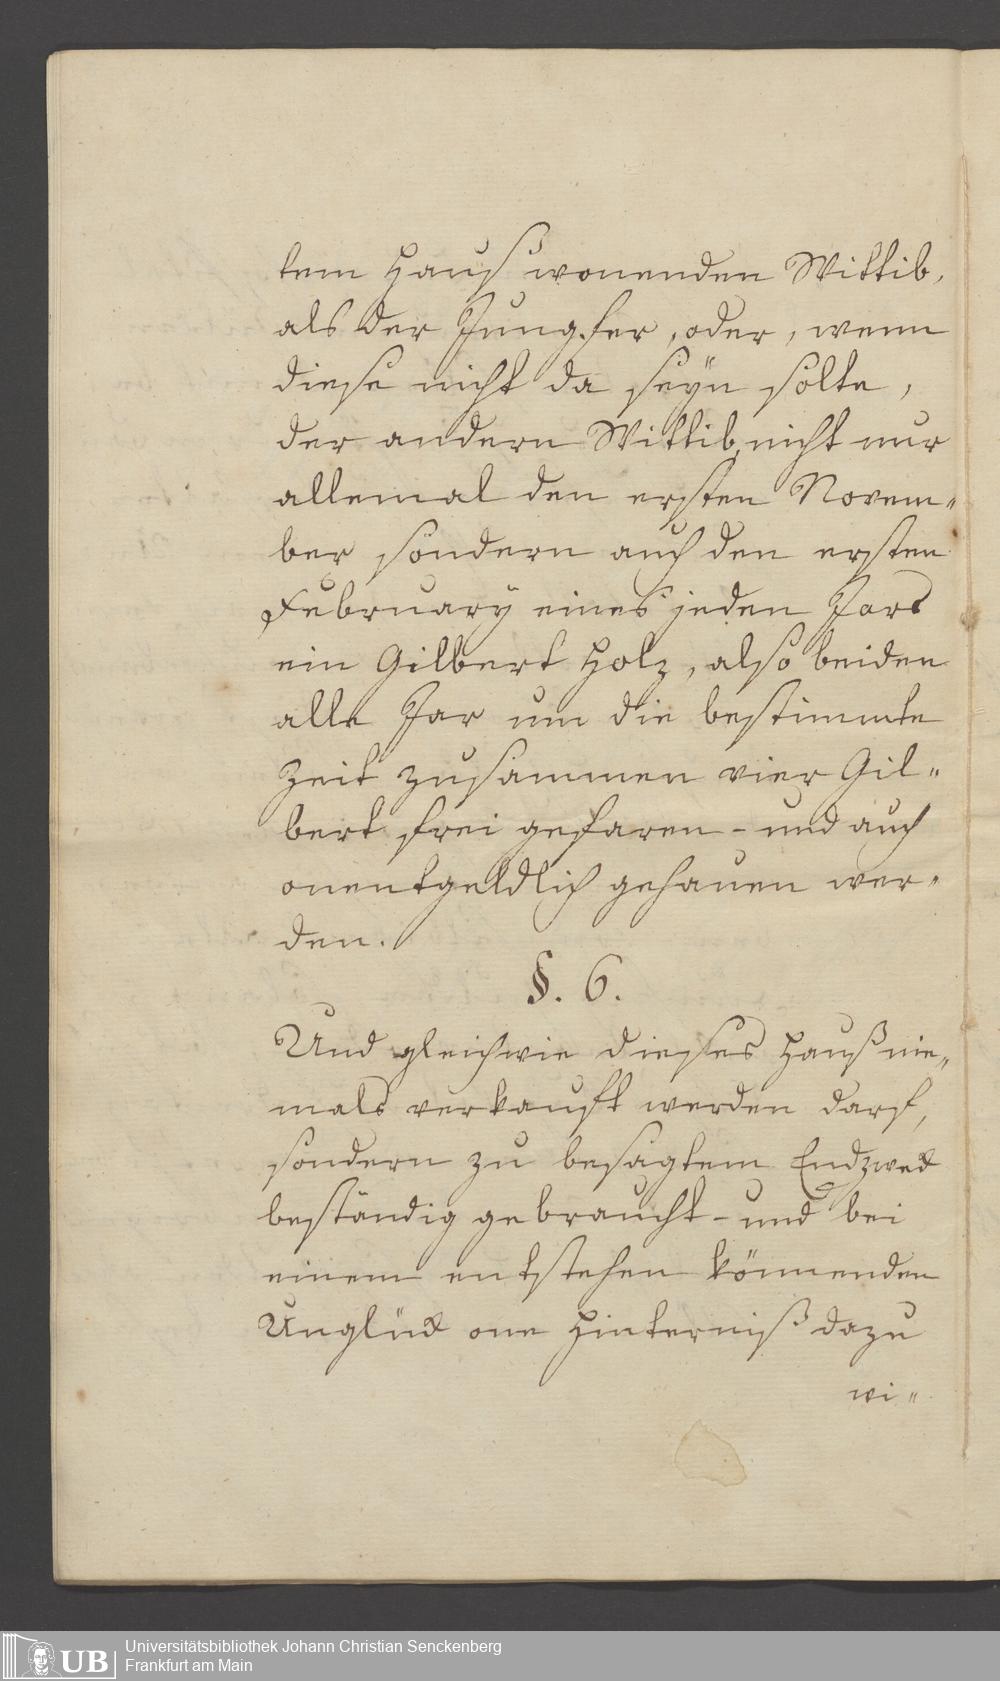 tem Hauß wonenden Wittib,
als der Jungfer, oder, wenn
diese nicht da seÿn solte,
der andern Wittib, nicht nur
allemal den ersten Novem„
ber sondern auch den ersten
February eines jeden Jars
ein Gilbert Holz, also beiden
alle Jar um die bestimmte
Zeit zusammen vier Gil„
bert frei gefaren- und auch
onentgeldlich gehauen wer„
den.
§. 6.
Und gleichwie dieses Hauß nie„
mals verkauft werden darf,
sondern zu besagtem Endzwek
beständig gebraucht- und bei
einem entstehen könnenden
Unglük one Hinterniß dazu
wi„
UB Universitätsbibliothek Johann Christian Senckenberg
Frankfurt am Main